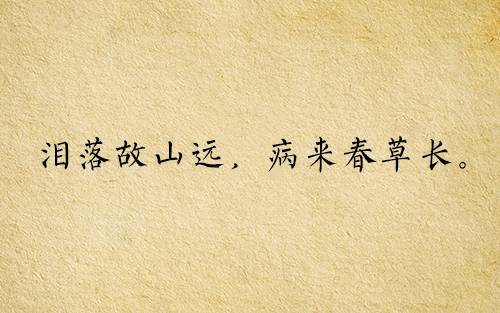 泪落故山远，病来春草长。